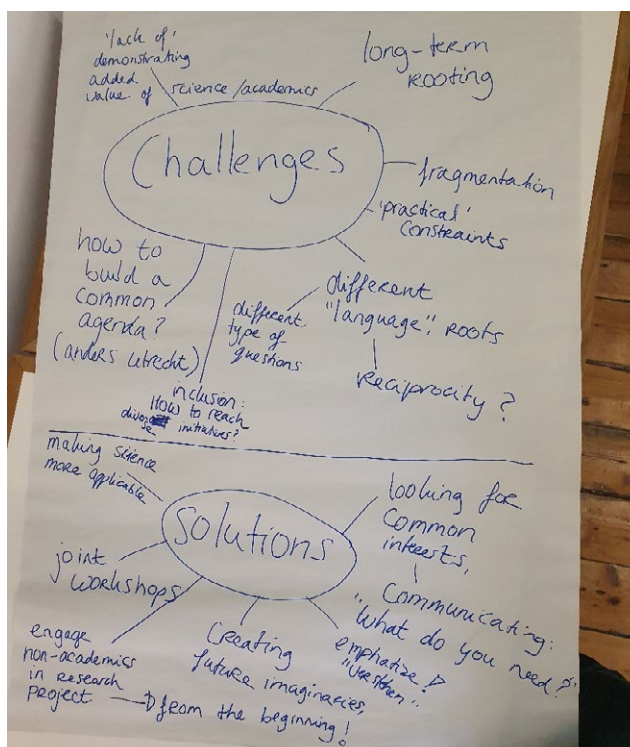 'lack of'
demonstrating
added
value of
science/academics
long-term
rooting
Challenges
fragmentation
'practical'
constraints
how to
build a
common
agenda?
(anders utrecht)
different
"language", roots
different
type of
questions
reciprocity?
inclusion:
How to reach
initiatives?
making science
more applicable
Solutions
looking for
common
interests,
joint
workshops
Communicating:
"What do you need?"
emphatize!
"Verstehen"
Creating
future imaginaries,
engage
non-academics
in research
project → from the beginning!